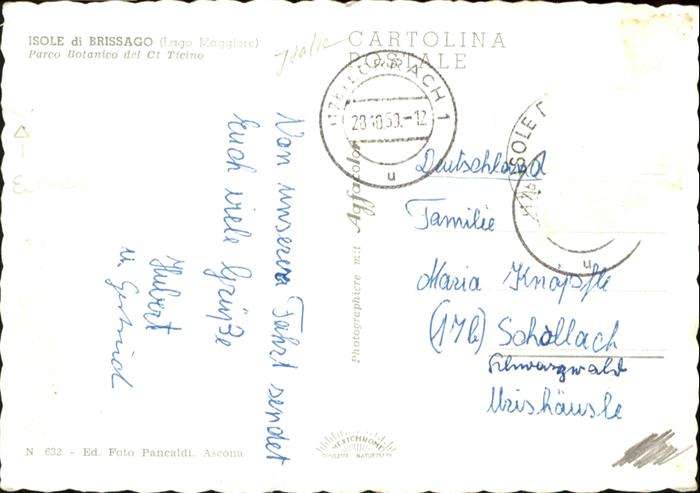 ISOLE di BRISSAGO (Lago Maggiore)
Parco Botanico del Ct Ticino
CARTOLINA
POSTALE
Von unserer Fahrt sendet
Euch viele Grüße
Hubert
u. Gertrud
Photographiere mit Agfacolor
20.10.59.-12
u
ISOLE
u
Deutschland
Familie
Maria Knöpfle
(17b) Schollach
Schwarzwald
Urishäusle
N 632 - Ed. Foto Pancaldi, Ascona